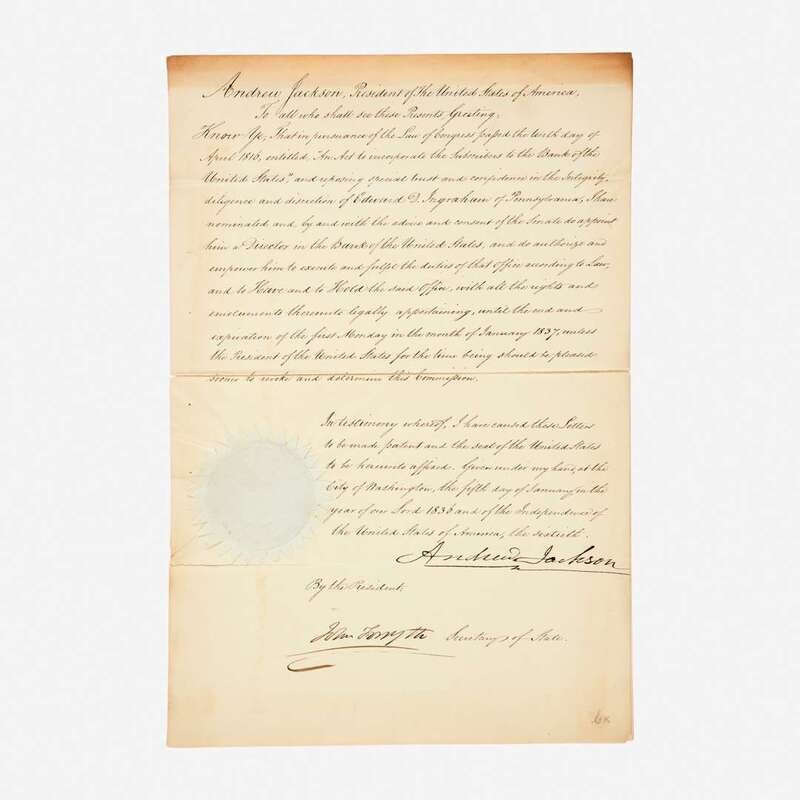 Andrew Jackson, President of the United States of America,
To all who shall see these Presents, Greeting,
Know Ye, That in pursuance of the Law of Congress passed the tenth day of
April 1816, entitled "An Act to incorporate the Subscribers to the Bank of the
United States", and reposing special trust and confidence in the Integrity,
diligence and discretion of Edward D. Ingraham of Pennsylvania, I have
nominated and, by and with the advice and consent of the Senate do appoint
him a Director in the Bank of the United States, and do authorize and
empower him to execute and fulfil the duties of that Office according to Law,
and to Have and to Hold the said Office, with all the rights and
emoluments thereunto legally appertaining, until the end and
expiration of the first Monday in the month of January 1837, unless
the President of the United States for the time being should be pleased
sooner to revoke and determine this Commission.
In testimony whereof, I have caused these Letters
to be made patent and the seal of the United States
to be hereunto affixed. Given under my hand at the
City of Washington, the fifth day of January in the
year of our Lord 1836 and of the Independence of
the United States of America, the sixtieth.
Andrew Jackson
By the President,
John Forsyth Secretary of State.